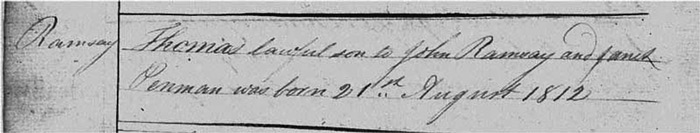 Ramsay Thomas lawful son to John Ramsay and Janet
Penman was born 21st August 1812